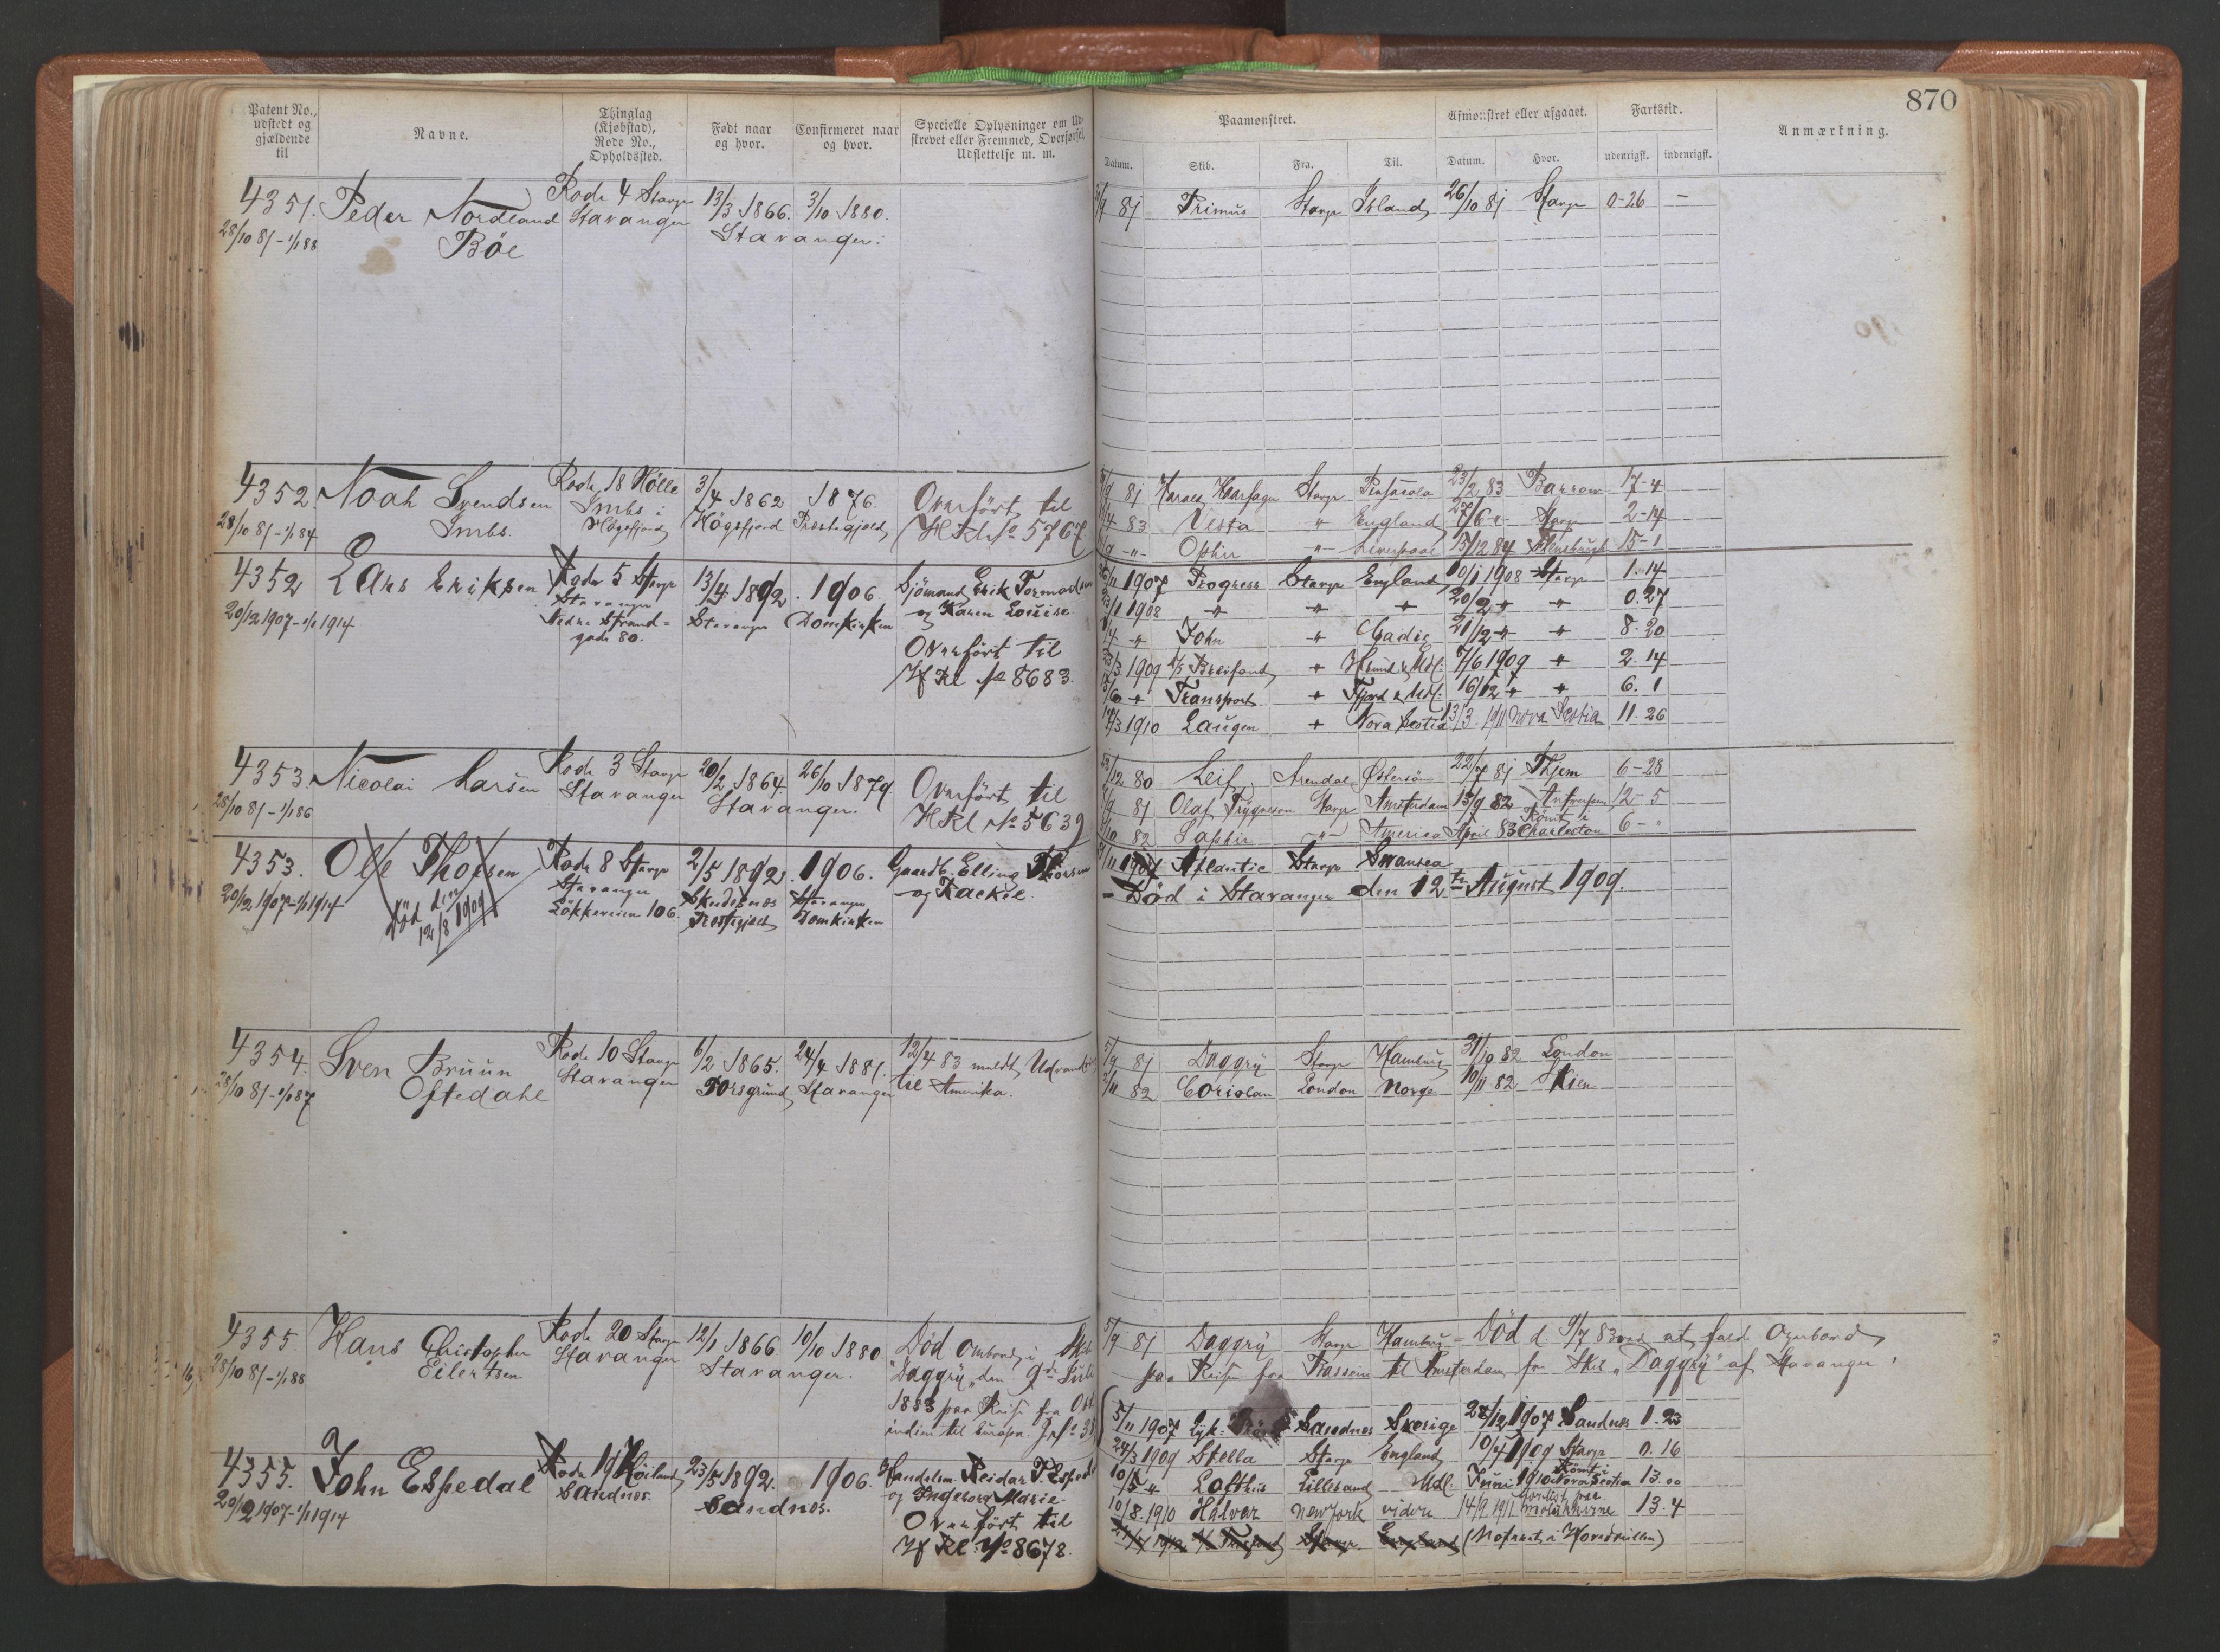 870
Patent No.,
udstedt og
gjældende
til
Navne.
Thinglag
(Kjøbstad),
Rode No.,
Opholdssted.
Født naar
og hvor.
Confirmeret naar
og hvor.
Specielle Oplysninger om Ud-
skrevet eller Fremmed, Overførsel,
Udslettelse m. m.
Paamønstret.
Datum.
Skib.
Fra.
Til.
Afmønstret eller afgaaet.
Datum.
Hvor.
Fartstid.
udenrigsk.
indenrigsk.
Anmærkning.
4351.
28/10 81 - 1/1 88
Peder Nordland
Böe
Rode 4 Stavgr
Stavanger
13/3 1866.
3/10 1880.
Stavanger.
81 Primus Stavgr Island 26/10 81 Stavgr 0-26 —
4352.
28/10 81 - 1/1 84
Noah Svendsen
Imbs.
Rode 18 Hölle
Imbs i
Högsfjord
3/4 1862
Högsfjord
1876.
Præstegjeld
Overfört til
HKl No 5767
81 Harald Haarfagre Stavgr Pensacola 23/2 83 Barrow 17-4
83 Vesta " England 27/6 Stavgr 2-14
Ophir " Liverpool 15/12 84 15-1
4352
20/12 1907 - 1/1 1914
Lars Eriksen
Rode 5 Stavgr
Stavanger
Nedre Strand-
gade 80.
13/4 1892.
Stavanger
1906.
Domkirken
Sjömand Erik Tormodsen
og Karen Louise
Overfört til
Hf Kl No 8683.
1907 Progress Stavgr England 10/1 1908 Stavgr 1.14
1908 " " " 20/2 " " 0.27
John " Cadiz 21/12 " " 8.20
1909 Breifond " 7/6 1909 " 2.14
Transport " Fjord & Udl. 16/12 " " 6.1
1910 Laugen " Nova Scotia 13/3 1911 Nova Scotia 11.26
4353.
28/10 81 - 1/1 86
Nicolai Larsen
Rode 3 Stavgr
Stavanger
20/2 1864.
26/10 1879
Stavanger.
Overfört til
HKl No 5639
80 Leif Arendal Østersöen 22/7 81 6-28
81 Olaf Trygveson Stavgr Amsterdam 13/9 82 Antwerpen 12-5
82 Saphir " America April 83 Römt i Charleston 6-"
4353.
20/12 1907 - 1/1 1914
Ole Thorsen
Död den
12/8 1909
Rode 8 Stavgr
Stavanger
Lökkeveien 106.
2/5 1892.
Skudesnes
Prestegjeld
1906.
Stavanger
Domkirken
Gaardb. Elling Thorsen
og Rackel.
1907 Atlantic Stavgr Swansea
- Död i Stavanger den 12te August 1909.
4354.
28/10 81 - 1/1 87
Sven Bruun
Oftedahl
Rode 10 Stavgr
Stavanger
6/2 1865.
Porsgrund
24/4 1881.
Stavanger
12/4 83 meldt Udvandret
til Amerika.
5/9 81 Daggry Stavgr Hamburg 31/10 82 London
82 Coriolan London Norge 10/11 82 Skien
4355.
28/10 81 - 1/1 88
Hans Christopher
Eilertsen
Rode 20 Stavgr
Stavanger
12/1 1866
10/10 1880
Stavanger.
Död ombord i Skib
"Daggry" den 9de Juli
1883 paa Reise fra Ost
indien til Europa.
5/9 81 Daggry Stavgr Hamburg - Död d 9/7 83 ved at falde overbord
paa Reise fra Bassein til Amsterdam fra Skb "Daggry" af Stavanger.
4355.
20/12 1907 - 1/1 1914
John Espedal
Rode 19 Höiland
Sandnes.
23/5 1892.
1906.
Sandnes.
Handelsm. Reidar T. Espedal
og Ingeborg Marie.
Overfört til
Hf Kl. No 8678.
5/11 1907 Sandnes Sverige 28/12 1907 Sandnes 1.23
24/3 1909 Stella Stavgr England 10/4 1909 Stavgr 0.16
10/5 " Lofthus Lillesand Udl. Juni 1910 Römt i Nova Scotia 13.00
10/8 1910 Halvar New York videre 14/9 1911 forlist paa Molukkerne 13.4